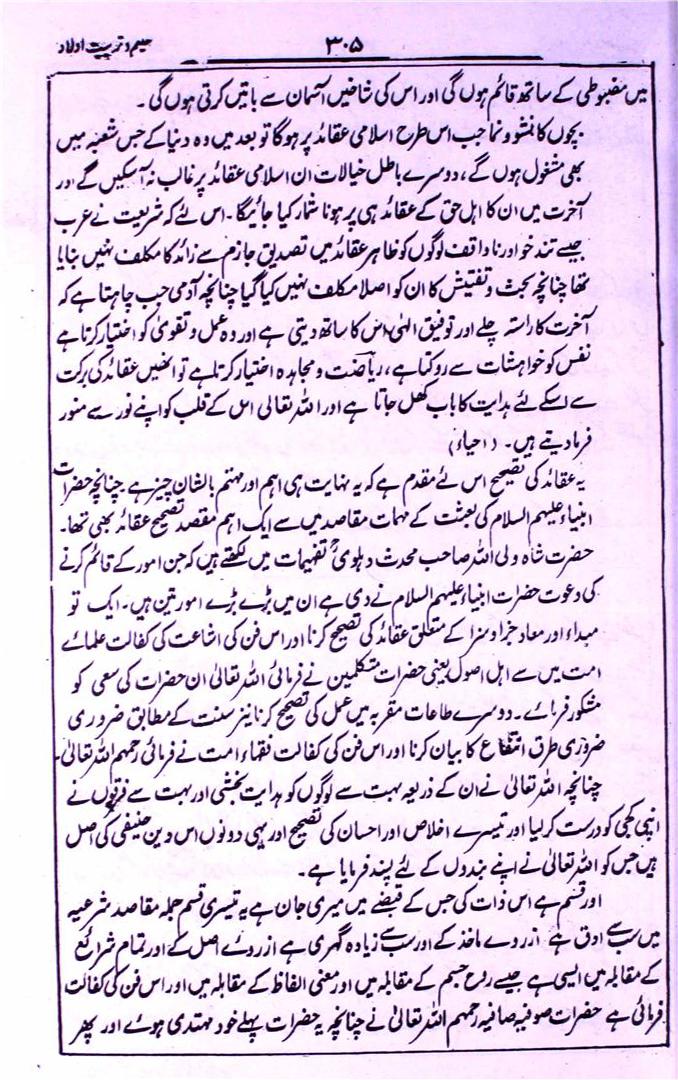 ۳۰۵
تعلیم و تربیت اولاد
میں مضبوطی کے ساتھ قائم ہوں گی اور اس کی شاخیں آسمان سے باتیں کرتی ہوں گی۔
بچوں کا نشو و نما جب اس طرح اسلامی عقائد پر ہوگا تو بعد میں وہ دنیا کے جس شعبہ میں
بھی مشغول ہوں گے، دوسرے باطل خیالات ان اسلامی عقائد پر غالب نہ آسکیں گے اور
آخرت میں ان کا اہل حق کے عقائد ہی پر ہونا شمار کیا جائیگا۔ اس لئے کہ شریعت نے عرب
جیسے تند خو اور ناواقف لوگوں کو ظاہر عقائد میں تصدیق جازم سے زائد کا مکلف نہیں بنایا
تھا چنانچہ بحث و تفتیش کا ان کو اصلا مکلف نہیں کیا گیا چنانچہ آدمی جب چاہتا ہے کہ
آخرت کا راستہ چلے اور توفیق الٰہی اس کا ساتھ دیتی ہے اور وہ عمل و تقویٰ کو اختیار کرتا ہے
نفس کو خواہشات سے روکتا ہے، ریاضت و مجاہدہ اختیار کرتا ہے تو انہیں عقائد کی برکت
سے اسکے لئے ہدایت کا باب کھل جاتا ہے اور اللہ تعالی اس کے قلب کو اپنے نور سے منور
فرما دیتے ہیں۔ (احیاء)
یہ عقائد کی تصحیح اس لئے مقدم ہے کہ یہ نہایت ہی اہم اور مہتم بالشان چیز ہے چنانچہ حضرات
انبیاء علیہم السلام کی بعثت کے مہمات مقاصد میں سے ایک اہم مقصد تصحیح عقائد بھی تھا۔
حضرت شاہ ولی اللہ صاحب محدث دہلویؒ تفہیمات میں لکھتے ہیں کہ جن امور کے قائم کرنے
کی دعوت حضرات انبیاء علیہم السلام نے دی ہے ان میں بڑے بڑے امور تین ہیں۔ ایک تو
مبداء اور معاد جزا و سزا کے متعلق عقائد کی تصحیح کرنا اور اس فن کی اشاعت کی کفالت علمائے
امت میں سے اہل اصول یعنی حضرات متکلمین نے فرمائی اللہ تعالیٰ ان حضرات کی سعی کو
مشکور فرمائے۔ دوسرے طاعات مقربہ میں عمل کی تصحیح کرنا نیز سنت کے مطابق ضروری
ضروری طرق انتفاع کا بیان کرنا اور اس فن کی کفالت فقہاء امت نے فرمائی رحمہم اللہ تعالیٰ۔
چنانچہ اللہ تعالیٰ نے ان کے ذریعہ بہت سے لوگوں کو ہدایت بخشی اور بہت سے فرقوں نے
اپنی کجی کو درست کر لیا اور تیسرے اخلاص اور احسان کی تصحیح اور یہی دونوں اس دین حنیفی کی اصل
ہیں جس کو اللہ تعالیٰ نے اپنے بندوں کے لئے پسند فرمایا ہے۔
اور قسم ہے اس ذات کی جس کے قبضے میں میری جان ہے یہ تیسری قسم جملہ مقاصد شرعیہ
میں سب سے ادق ہے ازروے ماخذ کے اور سب سے زیادہ گہری ہے ازروے اصل کے اور تمام شرائع
کے مقابلہ میں ایسی ہے جیسے روح جسم کے مقابلہ میں اور معنی الفاظ کے مقابلہ میں اور اس فن کی کفالت
فرمائی ہے حضرات صوفیہ صافیہ رحمہم اللہ تعالیٰ نے چنانچہ یہ حضرات پہلے خود مہتدی ہوئے اور پھر